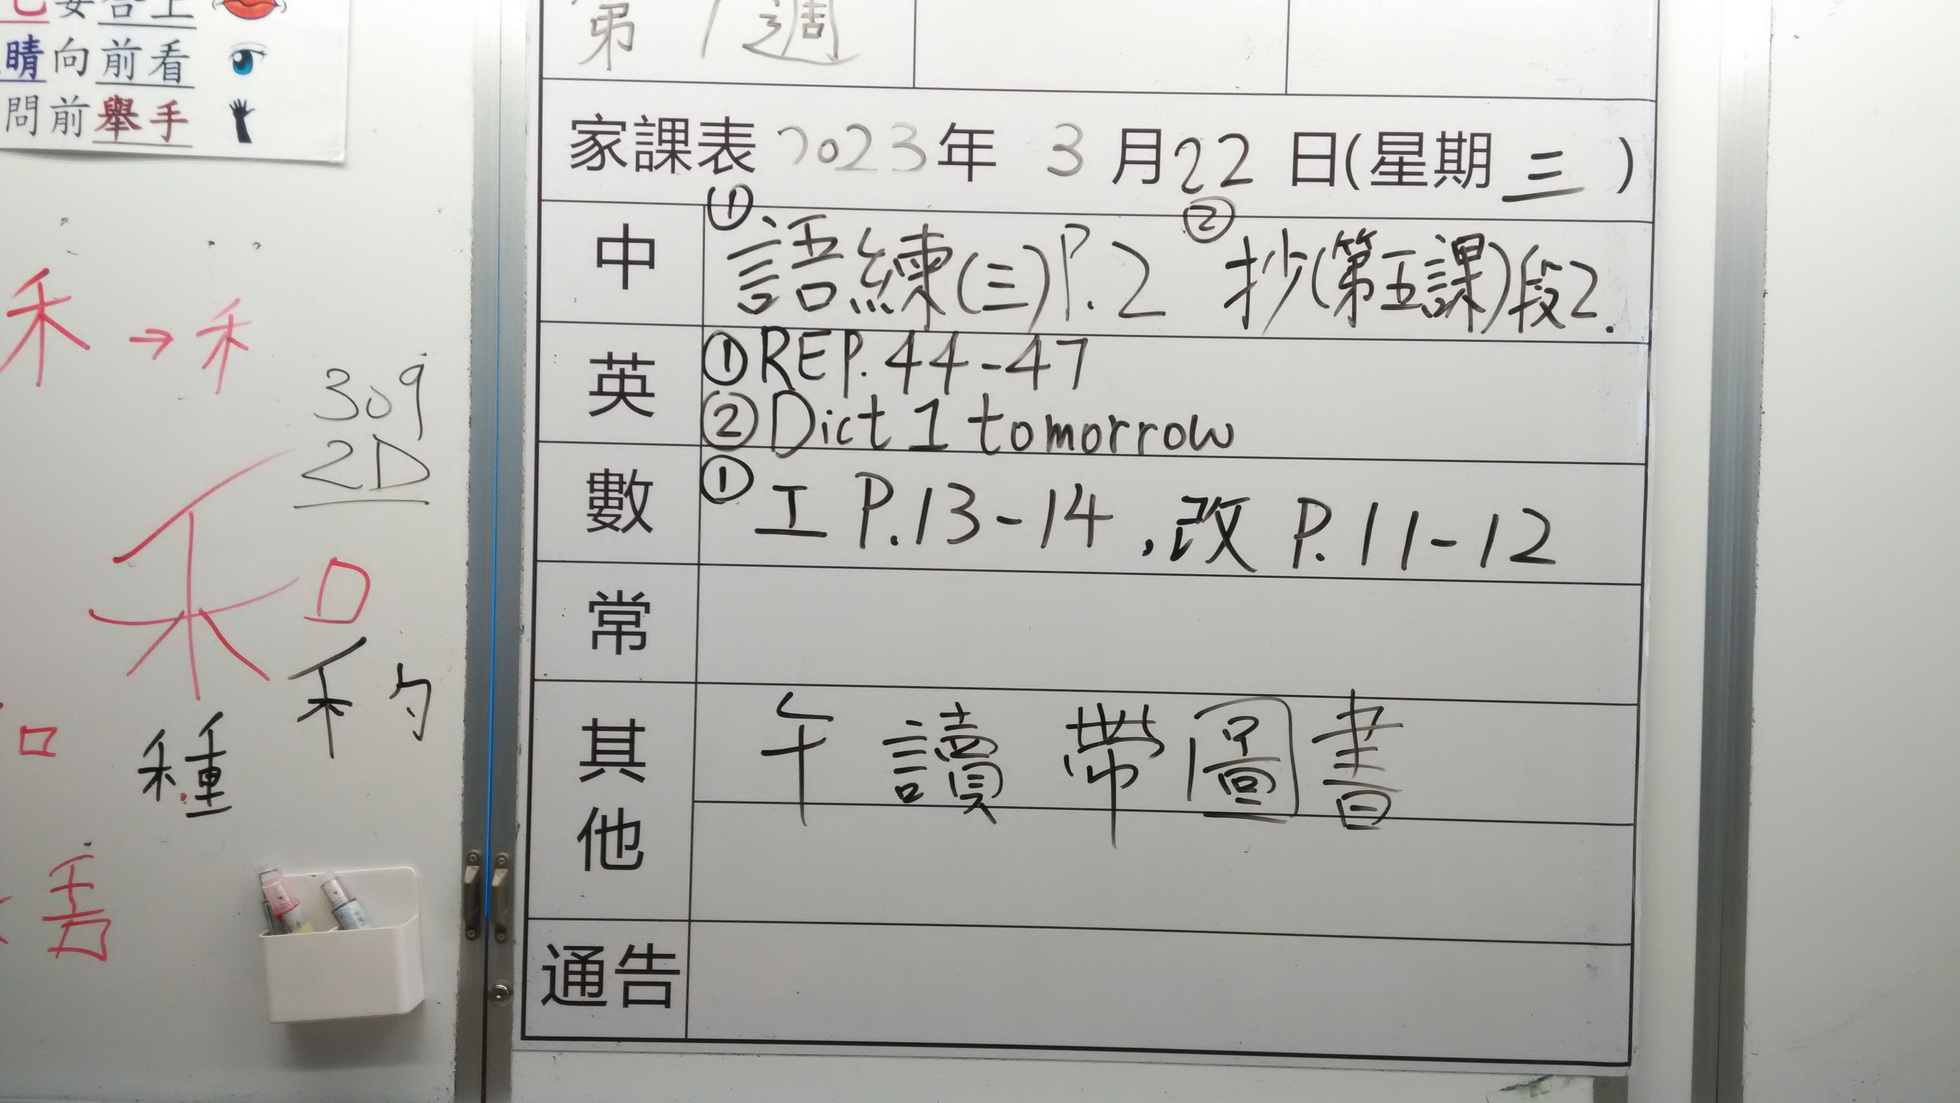 合上
睛向前看
問前舉手
禾→禾
309
2D
禾口
禾勺
種
口
第1週
家課表 2023年 3月22日(星期三)
中 ①語練(三)P.2 ②抄(第五課)段2.
英 ①REP.44-47
②Dict 1 tomorrow
數 ①工 P.13-14,改 P.11-12
常
其他 午讀 帶圖書
通告